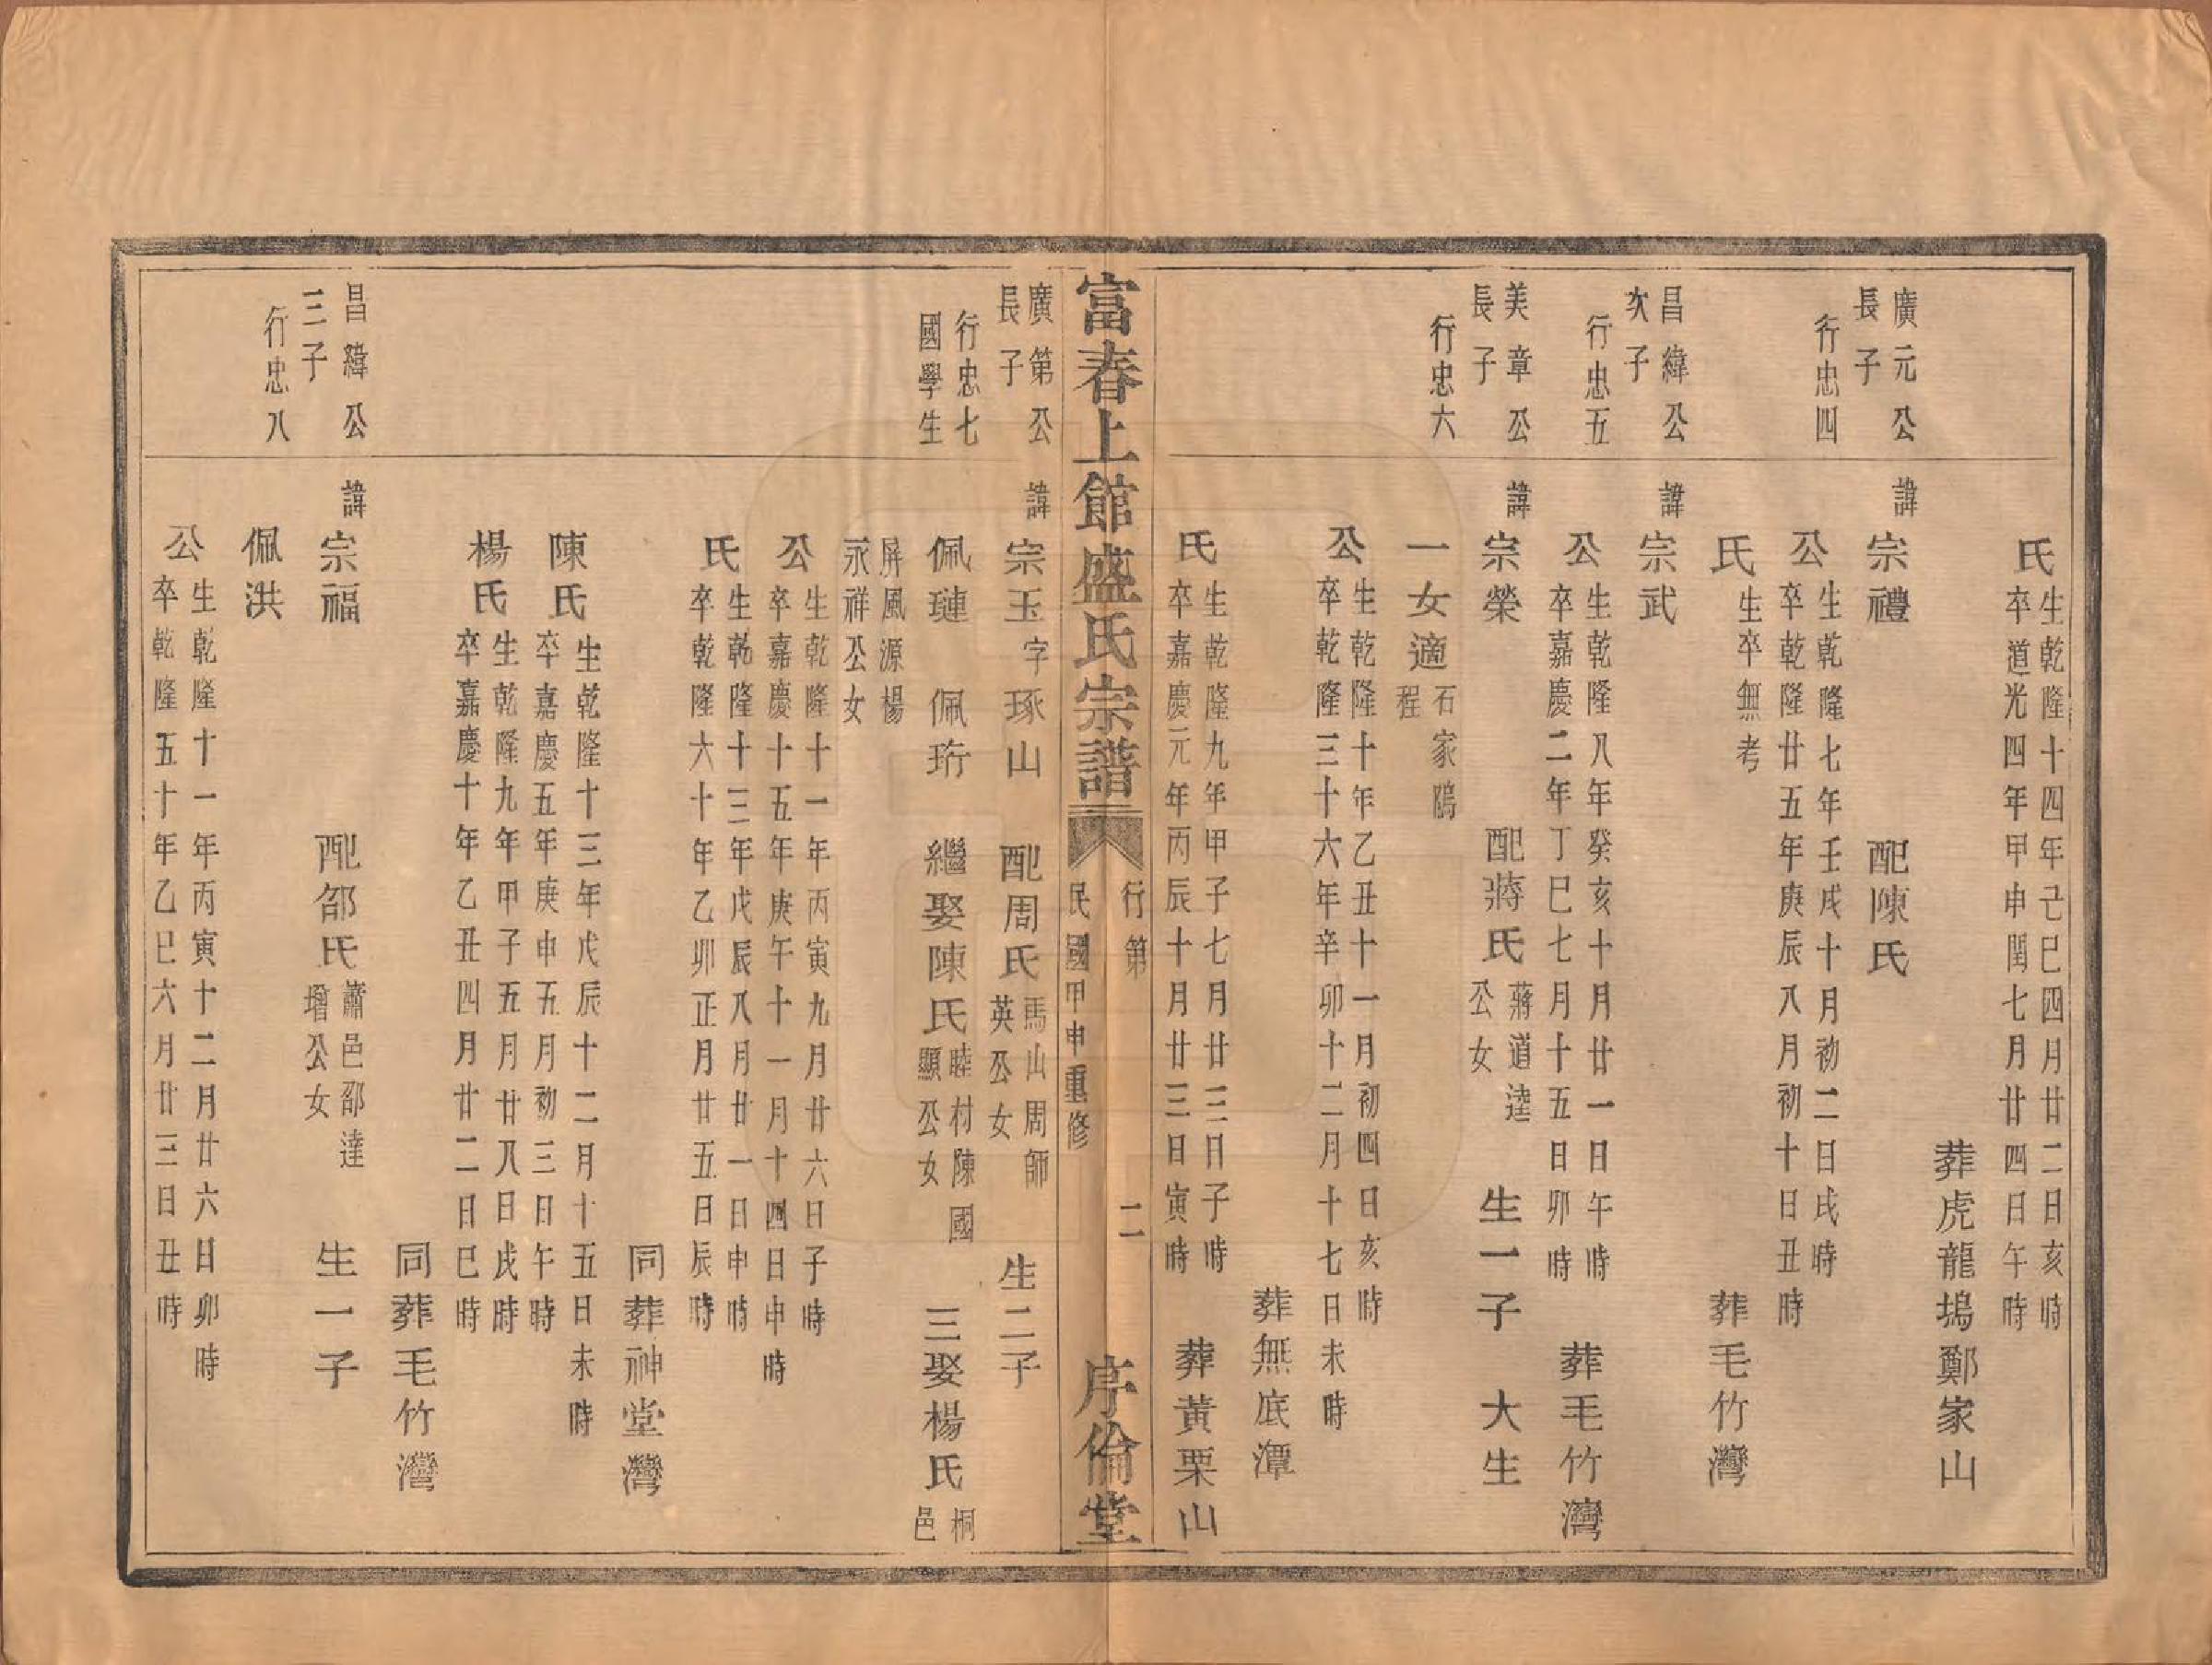 氏生乾隆十四年己巳四月廿二日亥時
卒道光四年甲申閏七月廿四日午時
葬虎龍塢鄭家山
廣元公
長子
行忠四
諱宗禮 配陳氏
公生乾隆七年壬戌十月初二日戌時
卒乾隆廿五年庚辰八月初十日丑時
氏生卒無考 葬毛竹灣
昌緯公
次子
行忠五
諱宗武
公生乾隆八年癸亥十月廿一日午時
卒嘉慶二年丁巳七月十五日卯時 葬毛竹灣
美章公
長子
行忠六
諱宗榮 配蔣氏蔣道逵
公女 生一子 大生
一女適石家隖
程
公生乾隆十年乙丑十一月初四日亥時
卒乾隆三十六年辛卯十二月十七日未時
葬無底潭
氏生乾隆九年甲子七月廿三日子時
卒嘉慶元年丙辰十月廿三日寅時 葬黃栗山
富春上館盛氏宗譜 行第 二 民國甲申重修 序倫堂
廣第公
長子
行忠七
國學生
諱宗玉字琢山 配周氏馬山周師
英公女 生二子
佩璉 佩珩 繼娶陳氏睦村陳國
顯公女 三娶楊氏桐
邑
屏風源楊
永祥公女
公生乾隆十一年丙寅九月廿六日子時
卒嘉慶十五年庚午十一月十四日申時
氏生乾隆十三年戊辰八月廿一日申時
卒乾隆六十年乙卯正月廿五日辰時
同葬神堂灣
陳氏生乾隆十三年戊辰十二月十五日未時
卒嘉慶五年庚申五月初三日午時
楊氏生乾隆九年甲子五月廿八日戌時
卒嘉慶十年乙丑四月廿二日巳時
同葬毛竹灣
昌緯公
三子
行忠八
諱宗福 配邵氏蕭邑邵達
增公女 生一子
佩洪
公生乾隆十一年丙寅十二月廿六日卯時
卒乾隆五十年乙巳六月廿三日丑時